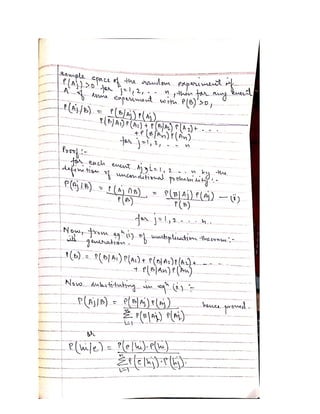 sample space of the random experiment if
P(Aj)>0 for j=1,2, ... n, then for any event
A of some experiment with P(B)>0,
P(Aj/B) = P(B/Aj) P(Aj)
P(B/A1)P(A1) + P(B/A2)P(A2) + ....
+ P(B/An)P(An)
for j=1,2, ... n
Proof:-
for each event Aj, j=1,2 ... n by the
definition of unconditional probability:-
P(Aj/B) = P(Aj ∩ B) = P(B/Aj) P(Aj) — (i)
P(B) P(B)
for j=1,2 ... n.
Now, from eqn (i) of multiplication theorem:-
with generation.
P(B) = P(B/A1) P(A1) + P(B/A2) P(A2) + ...
+ P(B/An) P(An)
Now substituting in eqn (i) :-
P(Aj/B) = P(B/Aj) P(Aj) hence proved.
Σ P(B/Aj) P(Aj)
i=1
or
P(hi/e) = P(e/hi).P(hi)
Σ P(e/hj).P(hj).
i=1